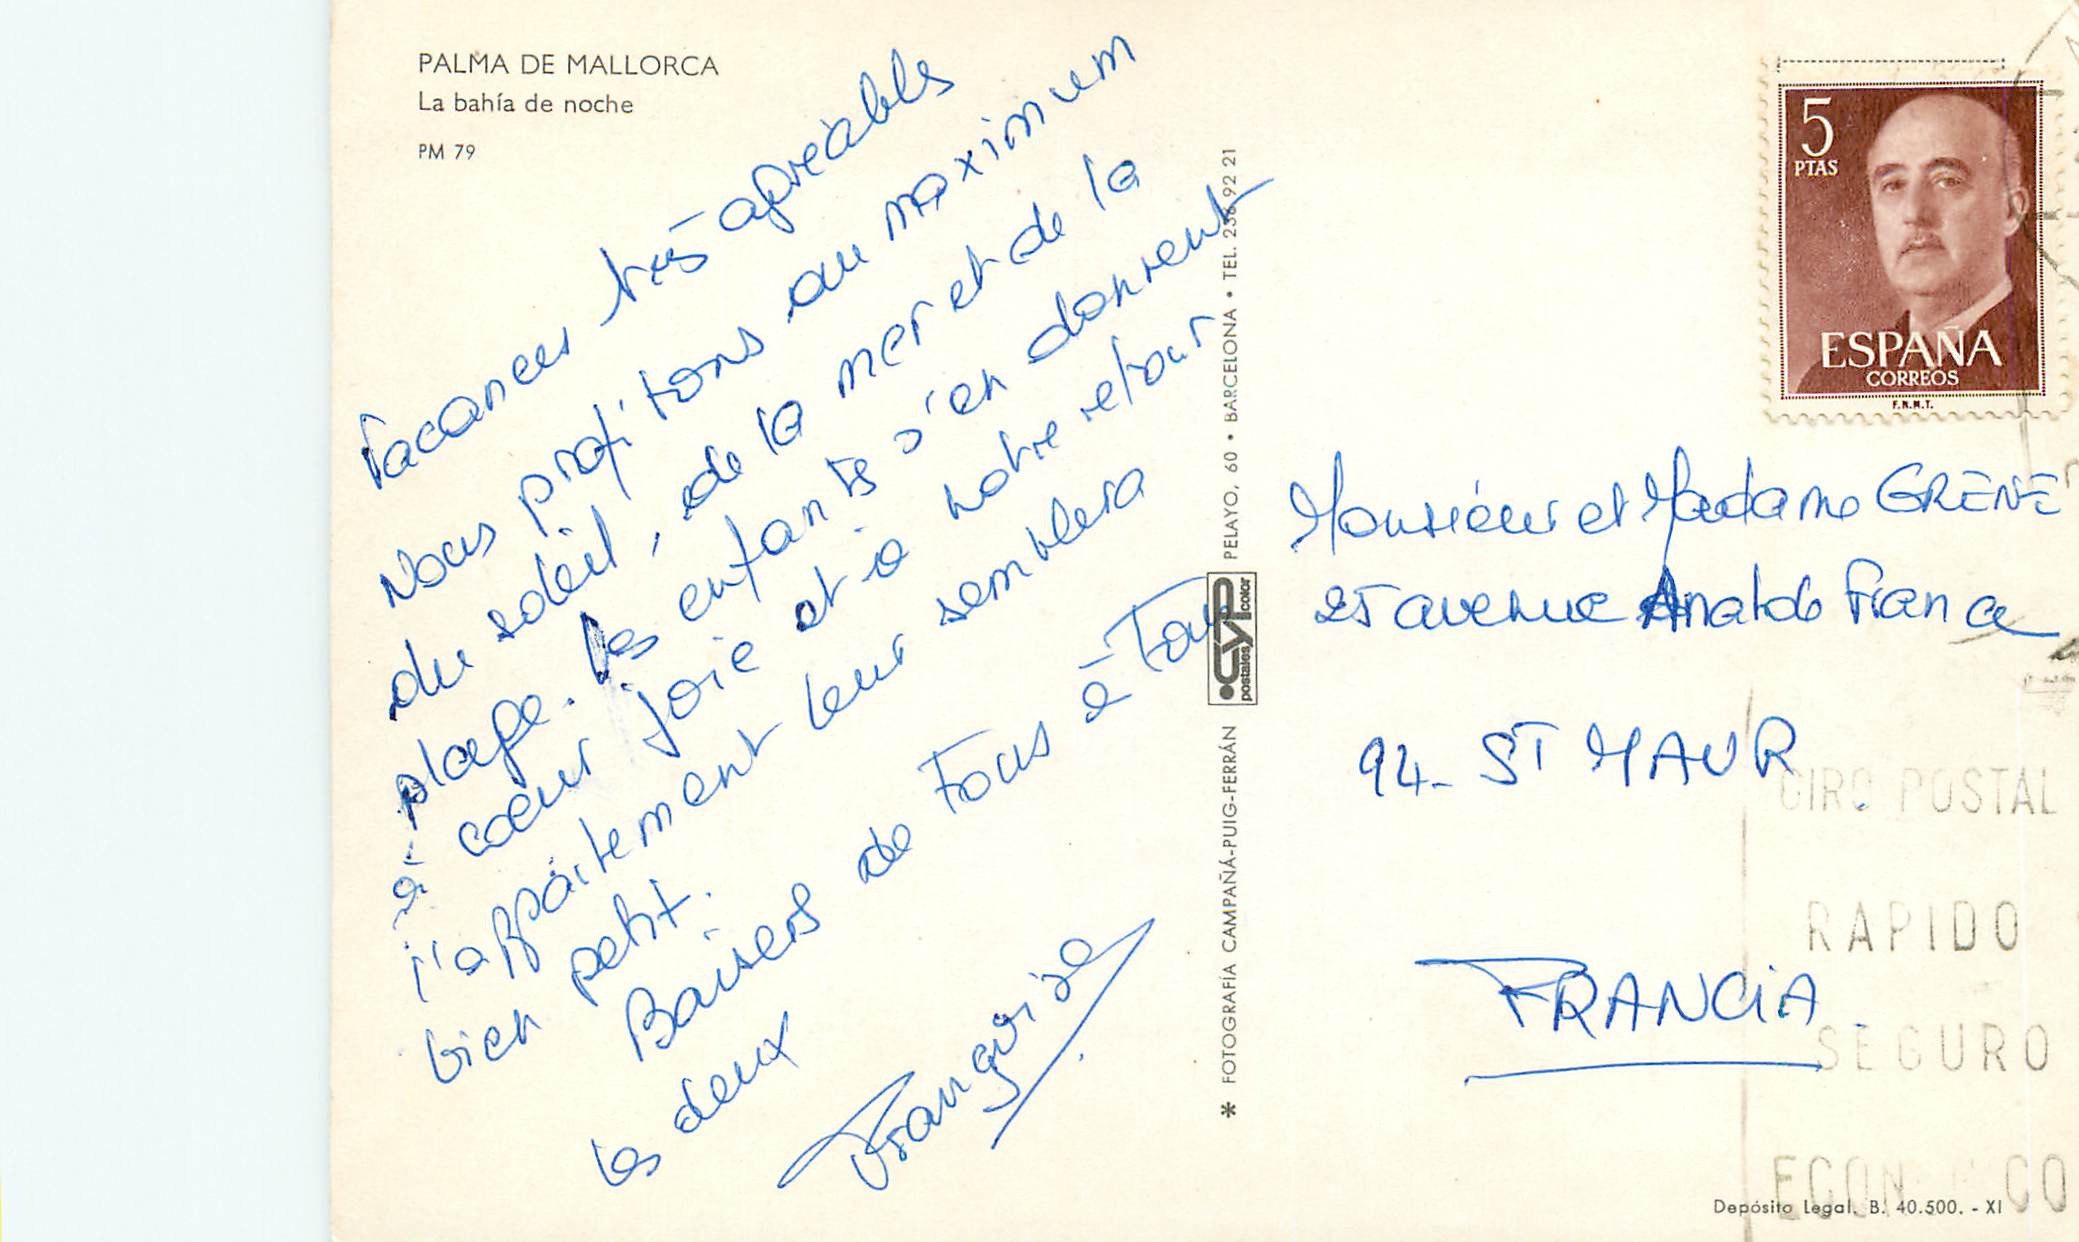 PALMA DE MALLORCA
La bahía de noche
PM 79
Vacances très apréables
Nous profitons au maximum
du soleil, de la mer et de la
plage. les enfants s'en donnent
à coeur joie et à notre retour
l'appartement leur semblera
bien petit.
Baisers de Tous à Tous
les deux
Françoise
* FOTOGRAFÍA CAMPAÑÁ-PUIG-FERRÁN
CYP
postales color
PELAYO, 60 • BARCELONA • TEL. 236 92 21
5
PTAS
ESPAÑA
CORREOS
F.N.M.T.
Monsieur et Madame GRENET
25 avenue Anatole France
94- ST MAUR
FRANCiA
GIRO POSTAL
RAPIDO
SEGURO
ECONOMICO
Depósito Legal. B. 40.500. - XI